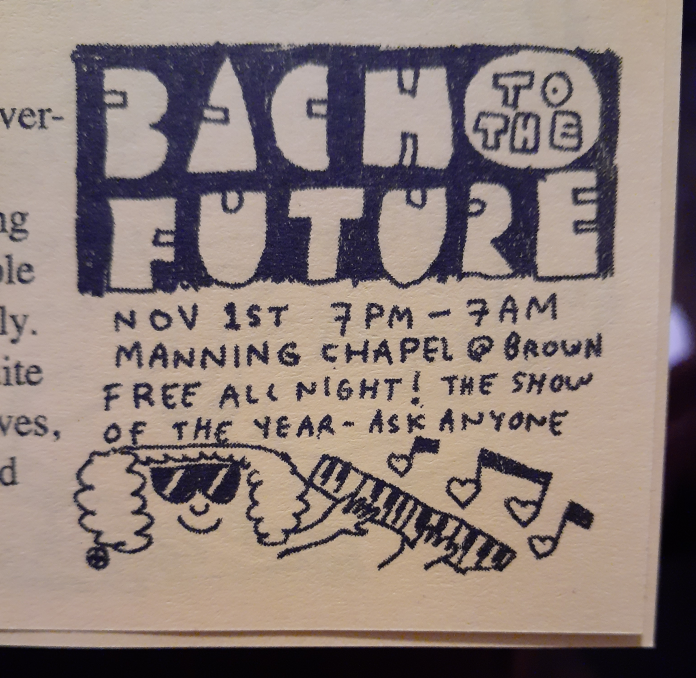 ver-
ng
ole
ly.
ite
ves,
d
BACH TO THE
FUTURE
NOV 1ST 7PM - 7AM
MANNING CHAPEL @ BROWN
FREE ALL NIGHT! THE SHOW
OF THE YEAR - ASK ANYONE